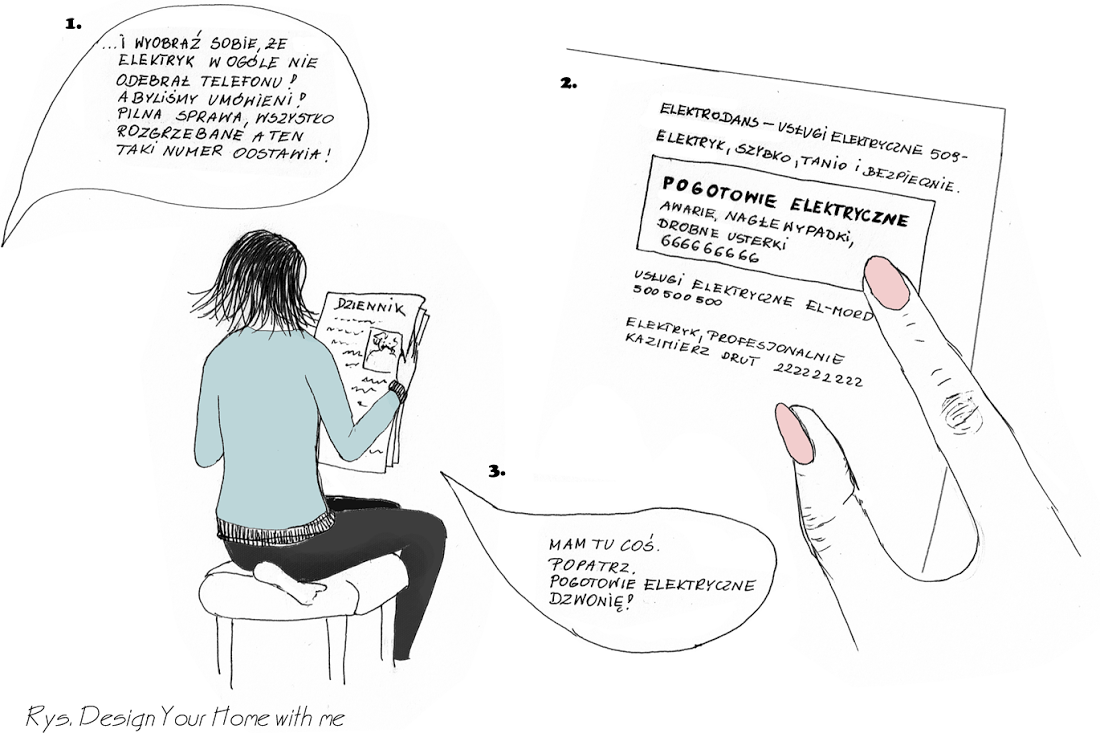 1.
...I WYOBRAŹ SOBIE, ŻE
ELEKTRYK W OGÓLE NIE
ODEBRAŁ TELEFONU!
A BYLIŚMY UMÓWIENI!
PILNA SPRAWA, WSZYSTKO
ROZGRZEBANE A TEN
TAKI NUMER ODSTAWIA!
DZIENNIK
2.
ELEKTRODANS – USŁUGI ELEKTRYCZNE 509-
ELEKTRYK, SZYBKO, TANIO i BEZPIECZNIE.
POGOTOWIE ELEKTRYCZNE
AWARIE, NAGŁE WYPADKI,
DROBNE USTERKI
666666666
USŁUGI ELEKTRYCZNE EL-MORD
500 500 500
ELEKTRYK, PROFESJONALNIE
KAZIMIERZ DRUT 222222222
3.
MAM TU COŚ.
POPATRZ.
POGOTOWIE ELEKTRYCZNE
DZWONIĘ!
Rys. Design Your Home with me